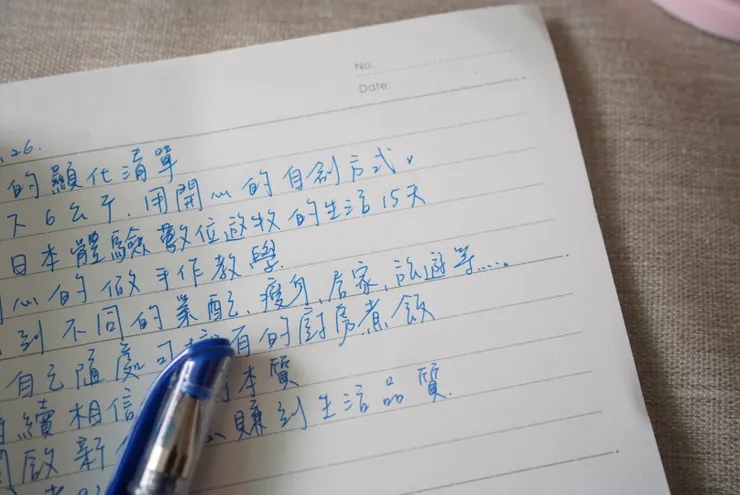 No.
Date:
.26.
的顯化清單
下6公斤.用開心的自創方式。
日本體驗數位遊牧的生活15天
心的做手作教學.
到不同的業配.瘦身.居家.旅遊等....。
自己隨處可 有的廚房煮飯
續相信 本質
啟新 賺到生活品質.